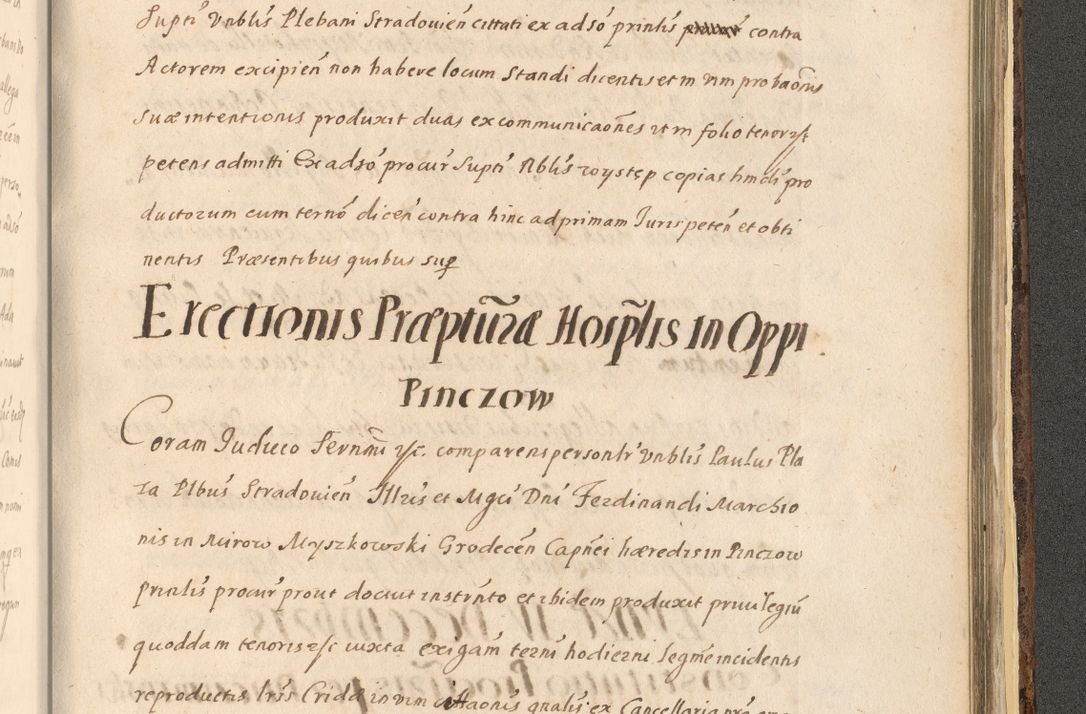 Supti Vnblis Plebani Stradouien cittati ex adso prinlis contra
Actorem excipien non habere locum Standi dicentis et in vim probaonis
Suæ intentionis produxit duas excommunicaones ut in folio tenor
petens admitti Ex adso procur Supti Nblis Występ copias hmdi pro
ductorum cum terno dicen contra hinc ad primam Juris peten et obti
nentis Præsentibus quibus sup
Erectionis Præpturæ Hosplis in Oppi
Pinczow
Coram Judico Sernmi comparens personlr Vnblis Paulus Pla
za Plbus Stradouien Illris et Mgci Dni Ferdinandi Marchio
nis in Mirow Myszkowski Grodecen Capnei hæredis in Pinczow
Prinlis procur prout docuit instrnto et ibidem produxit priuilegiu
quoddam tenoris iuxta exigam terni hodierni Segme incidentis
reproductis lris Cridæ in vim cittaonis gnalis ex Cancellaria